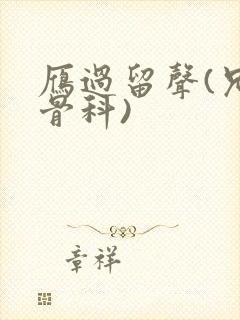 雁過留聲(兄
骨科)
章祥